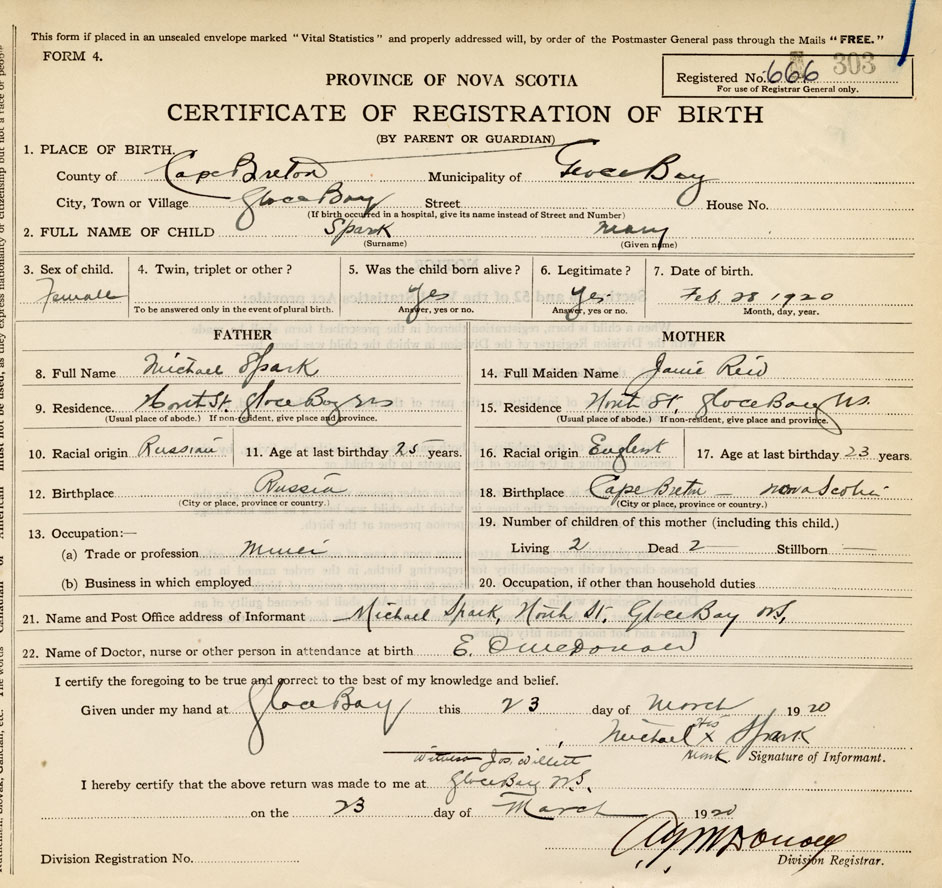 This form if placed in an unsealed envelope marked "Vital Statistics" and properly addressed will, by order of the Postmaster General pass through the Mails "FREE."
FORM 4.
Registered No. 666 303
For use of Registrar General only.
PROVINCE OF NOVA SCOTIA
CERTIFICATE OF REGISTRATION OF BIRTH
(BY PARENT OR GUARDIAN)
1. PLACE OF BIRTH.
County of Cape Breton Municipality of Glace Bay
City, Town or Village Glace Bay Street House No.
(If birth occurred in a hospital, give its name instead of Street and Number)
2. FULL NAME OF CHILD Spark Mary
(Surname) (Given name)
3. Sex of child. 4. Twin, triplet or other? 5. Was the child born alive? 6. Legitimate? 7. Date of birth.
Female Yes Yes Feb 28 1920
To be answered only in the event of plural birth. Answer, yes or no. Answer, yes or no. Month, day, year.
FATHER MOTHER
8. Full Name Michael Spark 14. Full Maiden Name Janie Reid
9. Residence. North St. Glace Bay NS 15. Residence North St, Glace Bay NS.
(Usual place of abode.) If non-resident, give place and province. (Usual place of abode.) If non-resident, give place and province.
10. Racial origin Russian 11. Age at last birthday 25 years. 16. Racial origin 17. Age at last birthday 23 years.
12. Birthplace Russia 18. Birthplace Cape Breton — Nova Scotia
(City or place, province or country.) (City or place, province or country.)
13. Occupation:— 19. Number of children of this mother (including this child.)
(a) Trade or profession Miner Living 2 Dead 2 Stillborn —
(b) Business in which employed 20. Occupation, if other than household duties
21. Name and Post Office address of Informant Michael Spark, North St, Glace Bay NS,
22. Name of Doctor, nurse or other person in attendance at birth E.
I certify the foregoing to be true and correct to the best of my knowledge and belief.
Given under my hand at Glace Bay this 23 day of March 1920
Michael His X Spark
mark Signature of Informant.
Witness Jos. Willett
I hereby certify that the above return was made to me at Glace Bay N.S.
on the 23 day of March 1920
Division Registration No. Division Registrar.